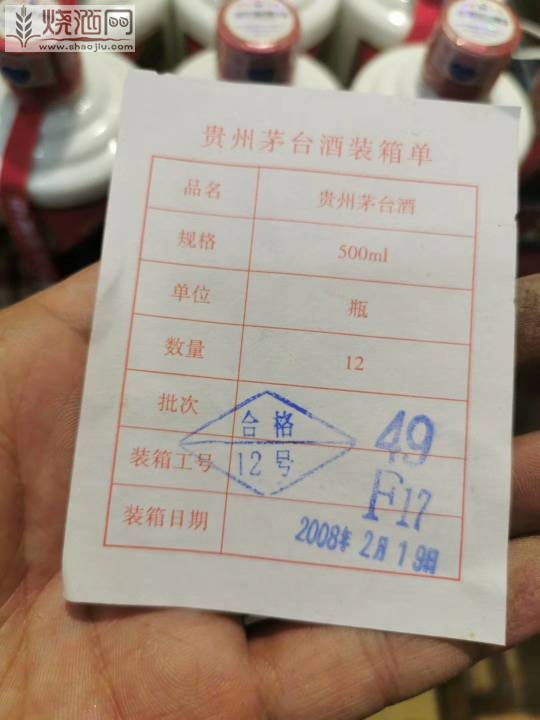 烧酒网
www.shaojiu.com
贵州茅台酒装箱单
品名 贵州茅台酒
规格 500ml
单位 瓶
数量 12
批次 49
合格
装箱工号 12号 F17
装箱日期 2008年2月19日